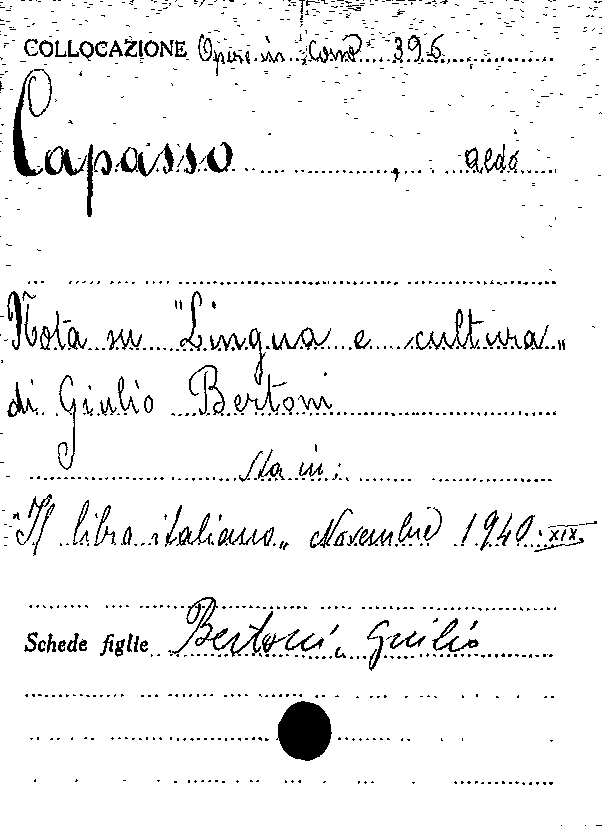 COLLOCAZIONE Opere in Cons 396
Capasso, Aldo
Nota su "Lingua e cultura„
di Giulio Bertoni
sta in:
"Il libro italiano„ Novembre 1940. XIX.
Schede figlie Bertoni, Giulio